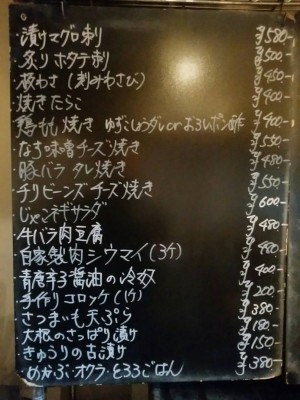 漬けマグロ刺 ¥580-
炙りホタテ刺 ¥500-
板わさ(刻みわさび) ¥450-
焼きたらこ ¥400-
鶏もも焼き ゆずこしょうダレorおろしポン酢 ¥400-
なす味噌チーズ焼き ¥550-
豚バラ タレ焼き ¥480-
チリビーンズチーズ焼き ¥550-
じゃこネギサラダ ¥600-
牛バラ肉豆腐 ¥480-
自家製肉シウマイ(3ケ) ¥480-
青唐辛子醤油の冷奴 ¥400-
手作りコロッケ(1ケ) ¥200-
さつまいも天ぷら ¥380-
大根のさっぱり漬け ¥180-
きゅうりの古漬け ¥150-
めかぶ・オクラ・とろろごはん ¥380-